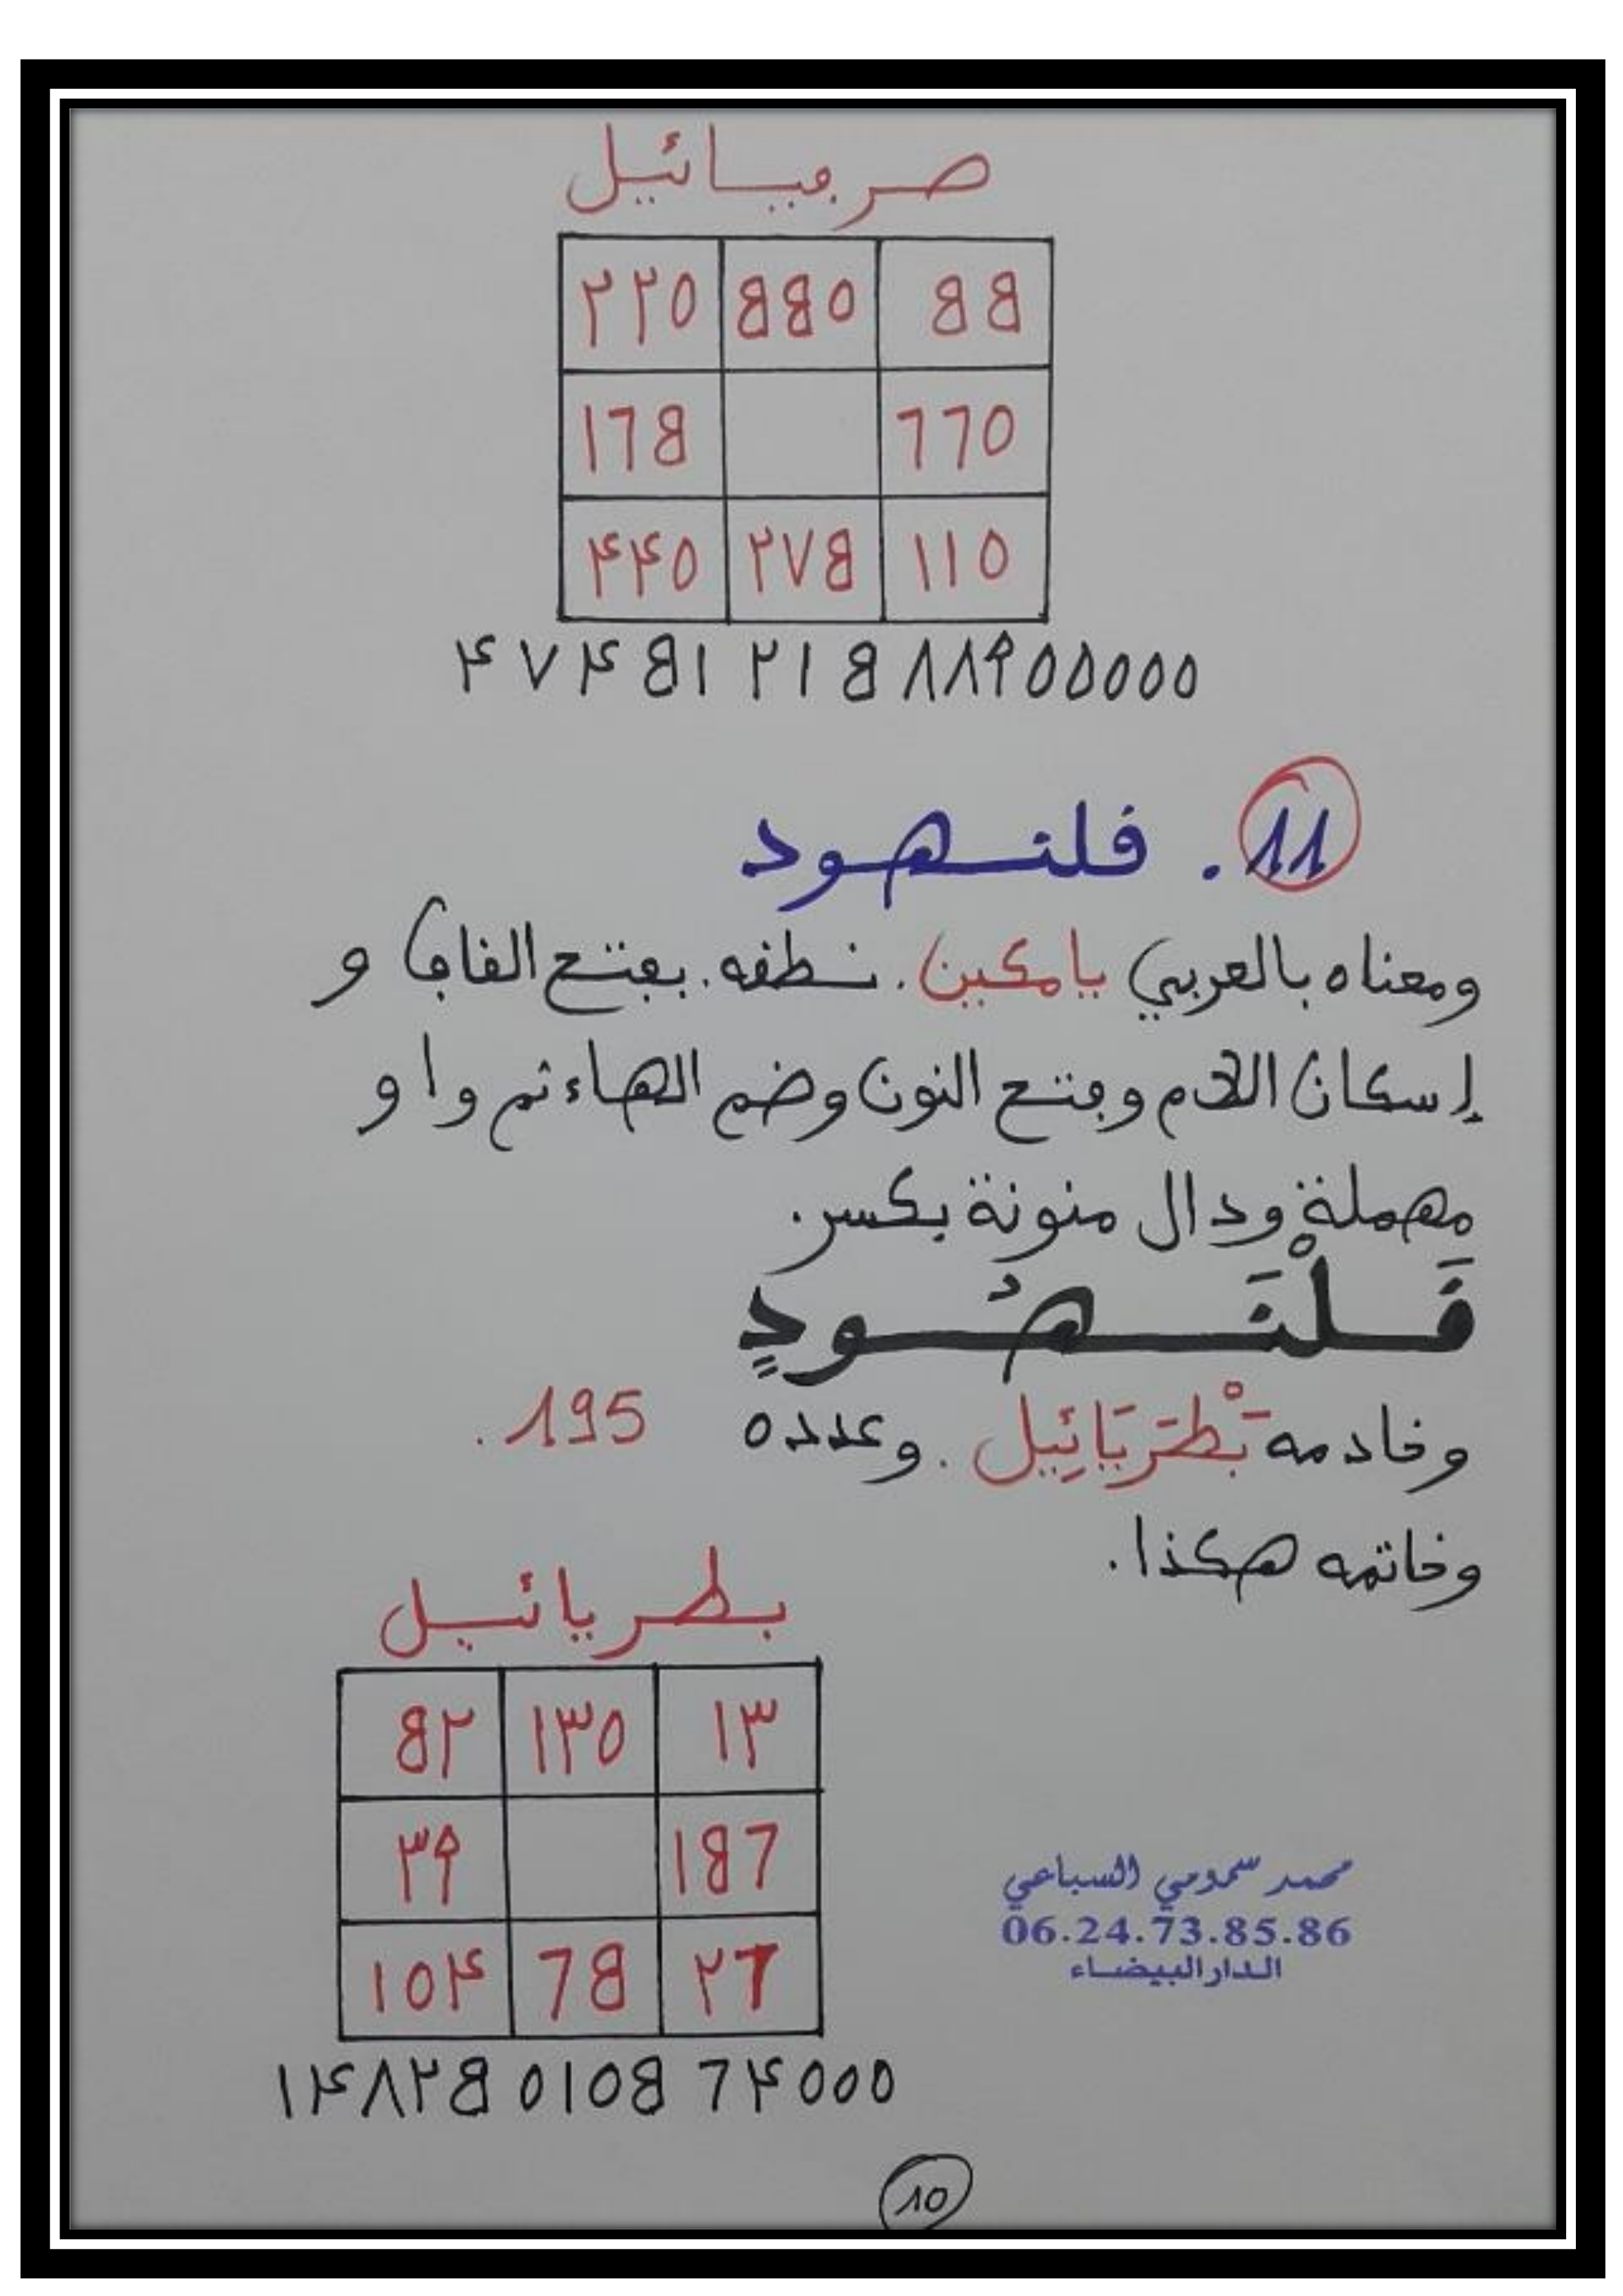 صرفيائيل
٢٢٠ ٥٥٠ ٥٥
١٦٥ ٦٦٠
٤٤٠ ٢٧٥ ١١٠
٤٧٤٥١ ٢١٥ ٨٨٩٠٠٠٠٠
11. قلنهود
ومعناه بالعربي يامكين. نطقه. بفتح القاف و
إسكان اللام وفتح النون وضم الهاء ثم واو
مهملة ودال منونة بكسر.
قَلْنَهُودٍ
وخادمه بَطْرَيَائِيل. وعدده 195.
وخاتمه هكذا.
بطريائيل
٥٢ ١٣٠ ١٣
٣٩ ١٥٦
١٠٤ ٦٥ ٢٦
١٤٨٢٥ ٠١٠٥ ٦٤٠٠٠
محمد سمومي السباعي
06.24.73.85.86
الدار البيضاء
10